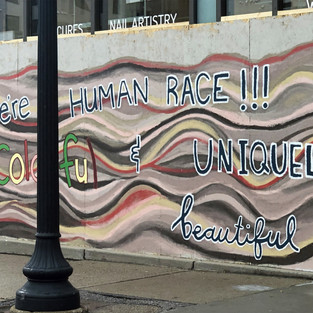 CURES NAIL ARTISTRY
e're HUMAN RACE!!!
Colorful & UNIQUEL
beautiful